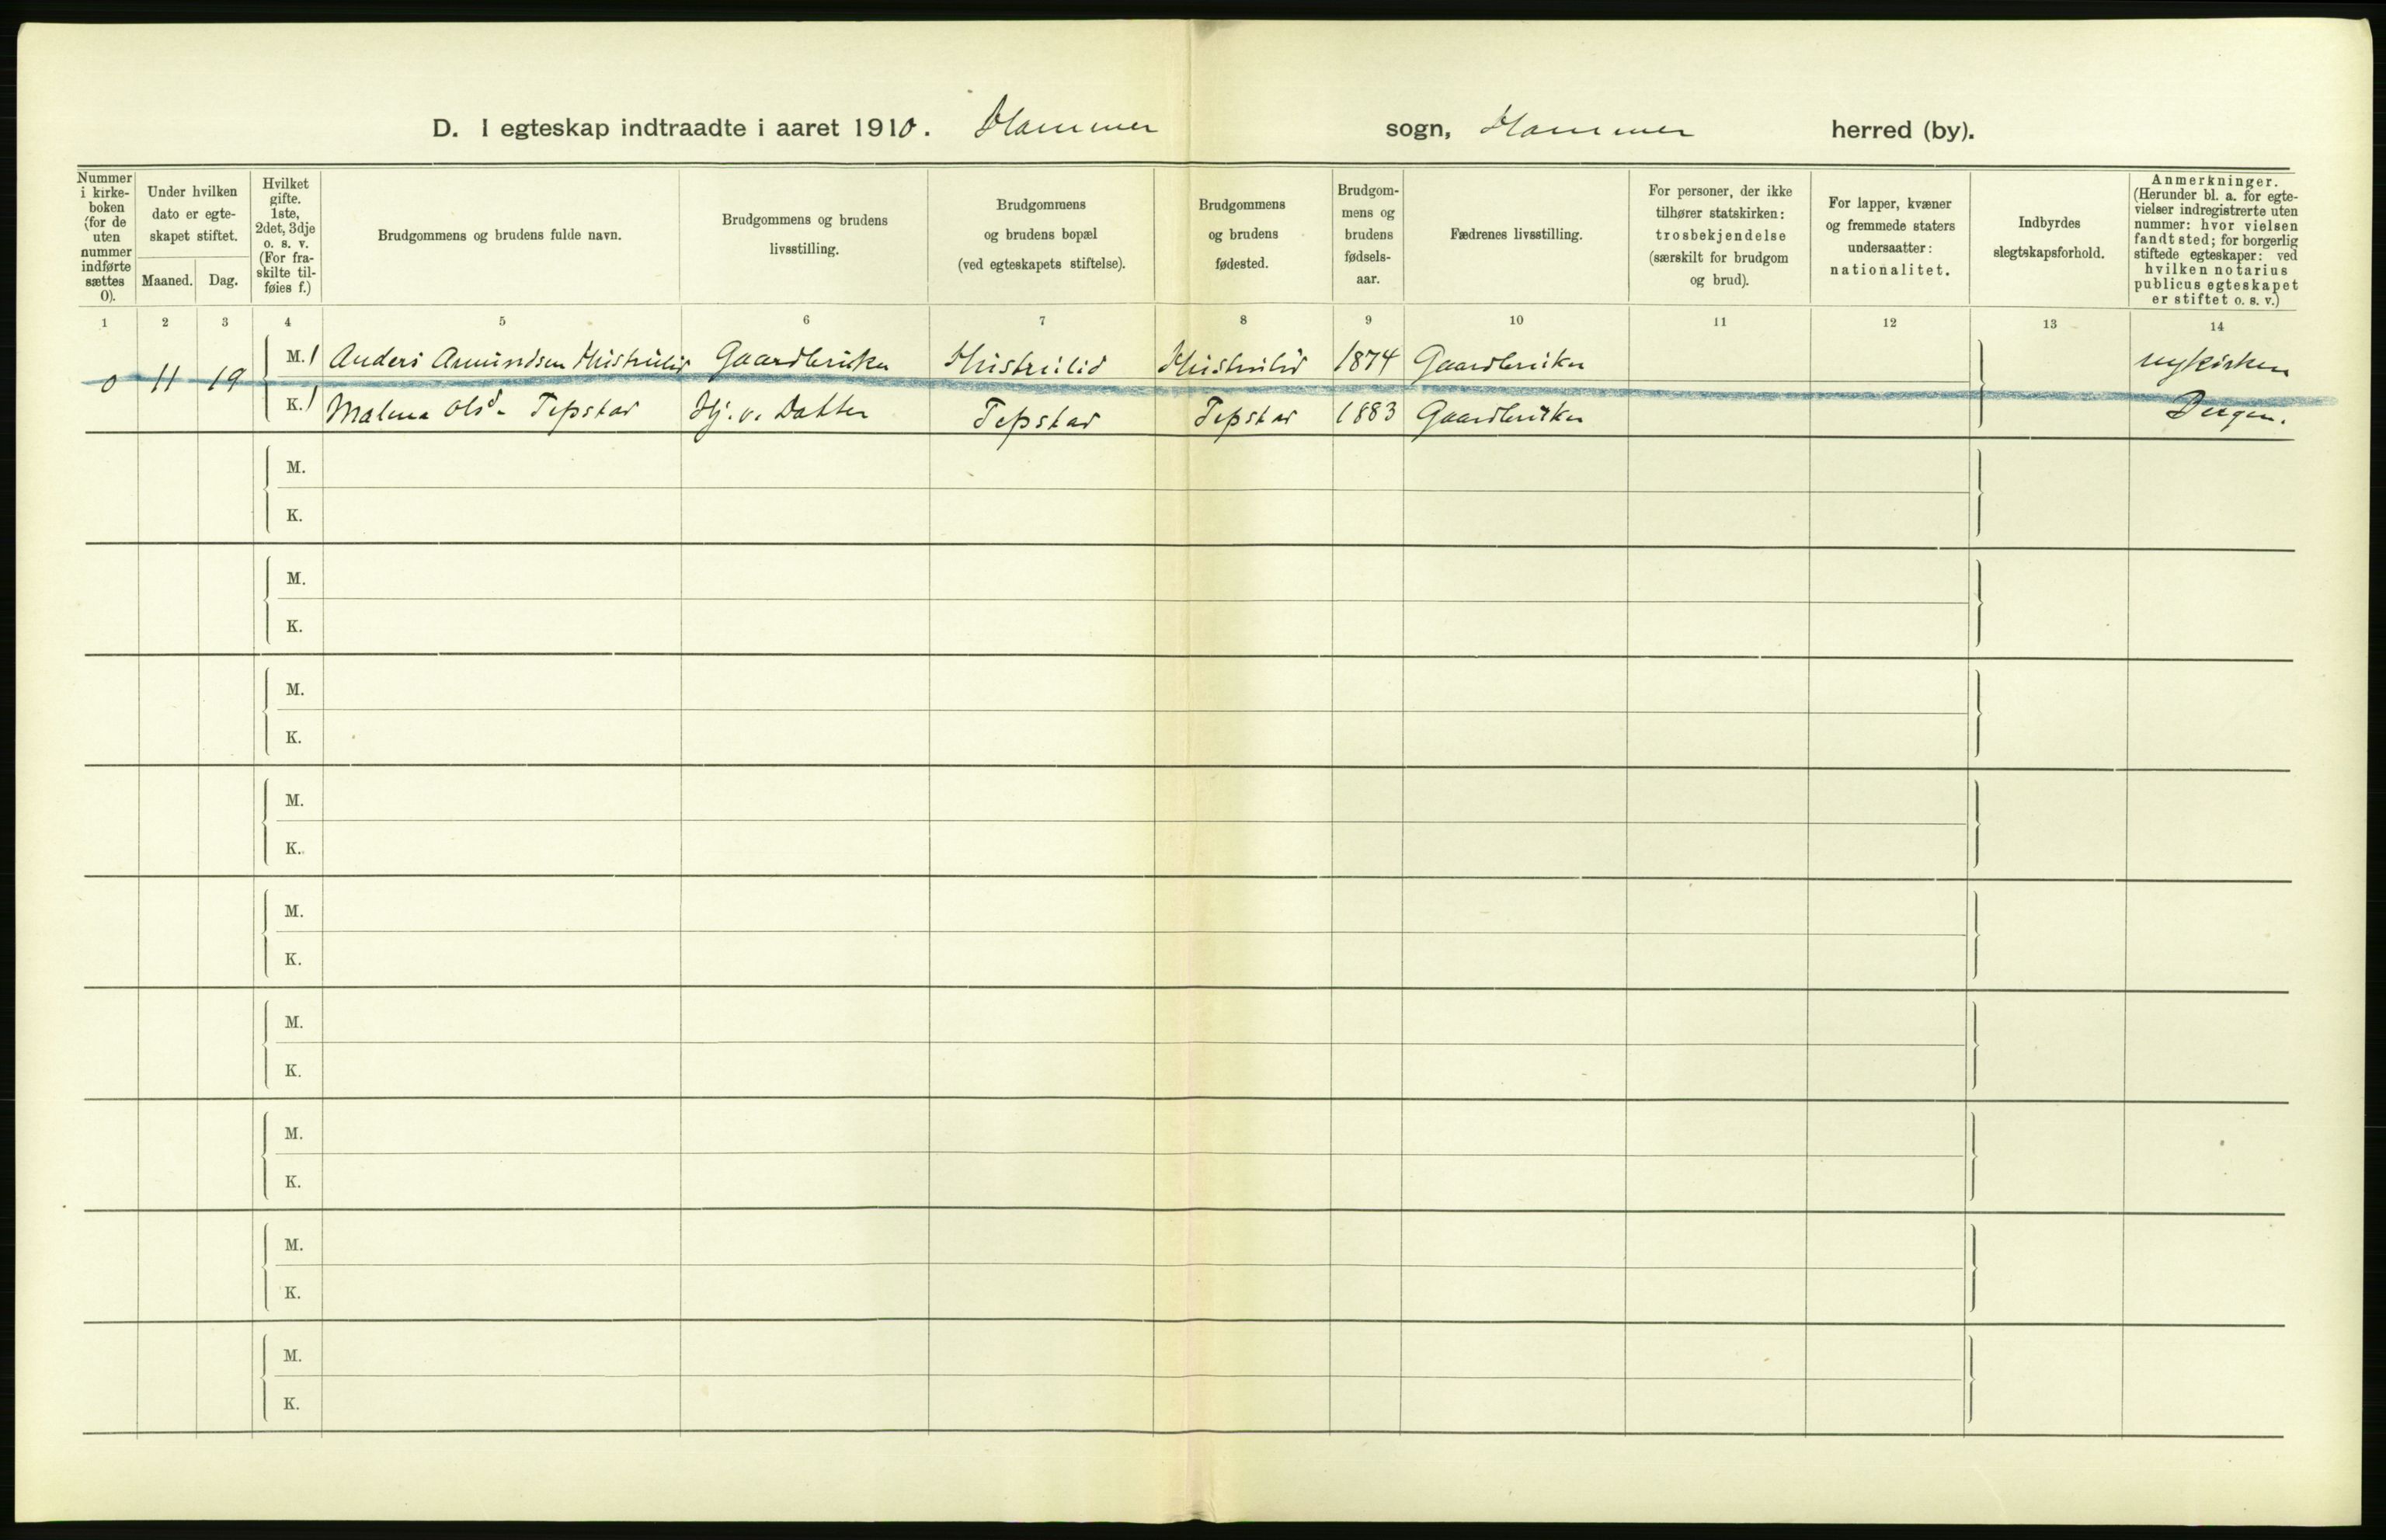 D. I egteskap indtraadte i aaret 1910. Hammer sogn, Hammer herred (by).
Nummer i kirke-boken (for de uten nummer indførte sættes 0).
Under hvilken dato er egte-skapet stiftet.
Maaned. Dag.
Hvilket gifte. 1ste, 2det, 3dje o. s. v. (For fra-skilte til-føies f.)
Brudgommens og brudens fulde navn.
Brudgommens og brudens livsstilling.
Brudgommens og brudens bopæl (ved egteskapets stiftelse).
Brudgommens og brudens fødested.
Brudgom-mens og brudens fødsels-aar.
Fædrenes livsstilling.
For personer, der ikke tilhører statskirken: trosbekjendelse (særskilt for brudgom og brud).
For lapper, kvæner og fremmede staters undersaatter: nationalitet.
Indbyrdes slegtskapsforhold.
Anmerkninger. (Herunder bl. a. for egte-vielser indregistrerte uten nummer: hvor vielsen fandt sted; for borgerlig stiftede egteskaper: ved hvilken notarius publicus egteskapet er stiftet o. s. v.)
1 2 3 4 5 6 7 8 9 10 11 12 13 14
0 11 19
M. 1 Anders Amundsen Gaardbruker 1874 Gaardbruker Nykirken
K. 1 Malena Olsd. Tepstad Hj. v. Datter Tepstad Tepstad 1883 Gaardbruker Bergen.
M.
K.
M.
K.
M.
K.
M.
K.
M.
K.
M.
K.
M.
K.
M.
K.
M.
K.